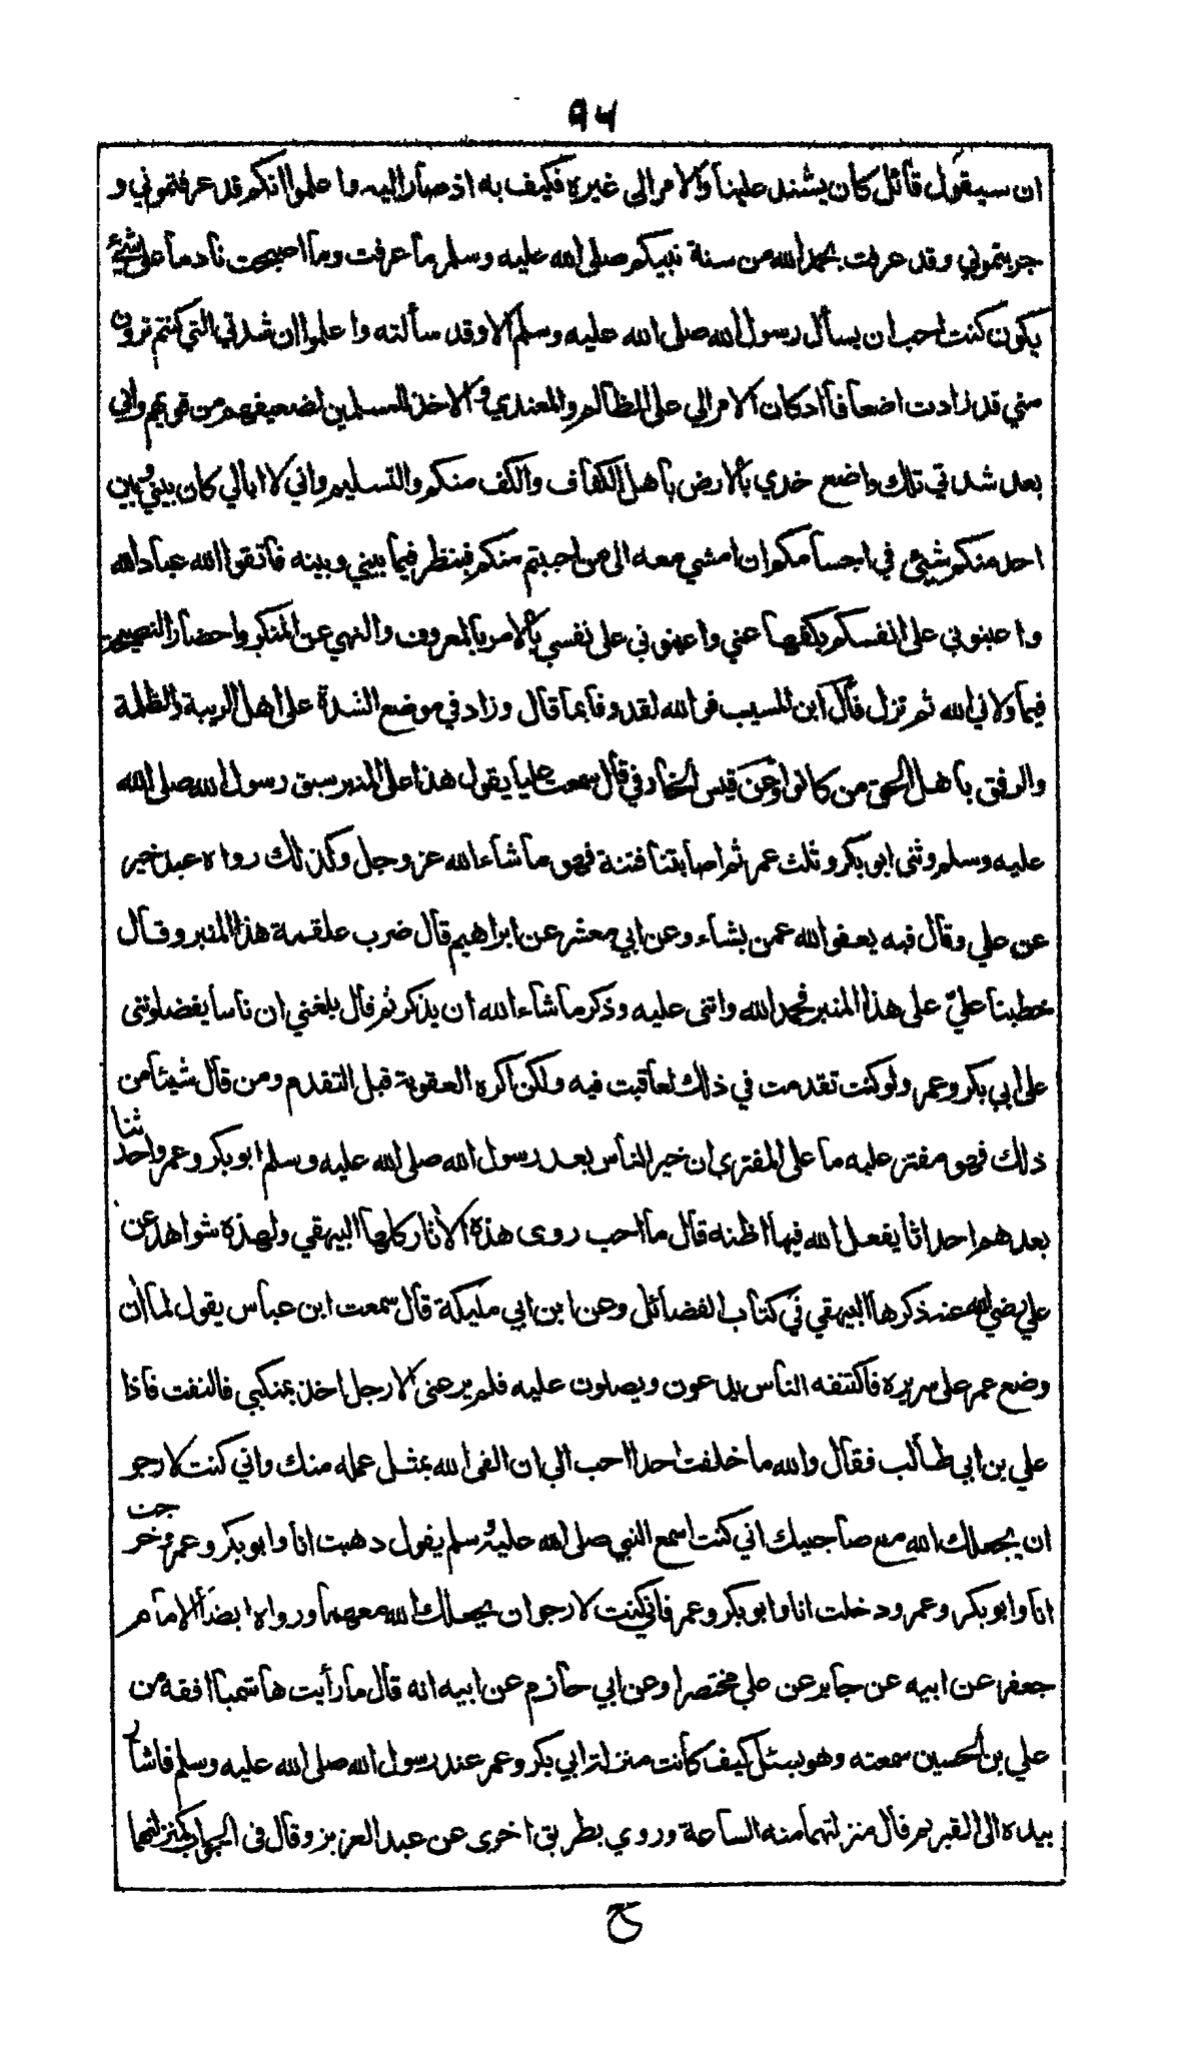 ٩٤
ان سيقول قائل كان يشتد علينا والامر الى غيره فكيف به اذ صار اليه واعلموا انكم قد عرفتموني و
جربتموني وقد عرفت بحمد الله من سنة نبيكم صلى الله عليه وسلم ما عرفت وما اصبحت نادما على شيئ
يكون كنت احب ان يسأل رسول الله صلى الله عليه وسلم الا وقد سألته واعلموا ان شدتي التي كنتم ترون
مني قد زادت اضعافا اد كان الامر الي على الظالم والمعتدي والاخذ للمسلمين لضعيفهم من قويهم واني
بعد شدتي تلك واضع خدي بالارض باهل الكفاف والكف منكم والتسليم واني لا ابالي كان بيني وبين
احد منكم شيئ في احسامكم ان امشي معه الى من احببتم منكم فينظر فيما بيني وبينه فاتقوا الله عباد الله
واعينوني على انفسكم بكفها عني واعينوني على نفسي بالامر بالمعروف والنهي عن المنكر واحضار النصيحة
فيما ولاني الله ثم نزل قال ابن المسيب فو الله لقد وفا بما قال وزاد في موضع الشدة على اهل الريبة والظلمة
والرفق باهل الحق من كانوا وعن قيس الخارفي قال سمعت عليا يقول هذا على المنبر سبق رسول الله صلى الله
عليه وسلم وثنى ابو بكر وثلث عمر ثم اصابتنا فتنة فهو ما شاء الله عز وجل وكذلك رواه عبد خير
عن علي وقال فيه يعفو الله عمن يشاء وعن ابي معشر عن ابراهيم قال ضرب علقمة هذا المنبر وقال
خطبنا عليّ على هذا المنبر فحمد الله واثنى عليه وذكر ما شاء الله أن يذكر ثم قال بلغني ان ناسا يفضلونني
على ابي بكر وعمر ولو كنت تقدمت في ذلك لعاقبت فيه ولكن اكره العقوبة قبل التقدم ومن قال شيئا من
ذلك فهو مفتر عليه ما على المفتري ان خير الناس بعد رسول الله صلى الله عليه وسلم ابو بكر وعمر واحدثنا
بعدهم احداثا يفعل الله فيها اظنه قال ما احب روى هذه الأثار كلها البيهقي ولهذه شواهد عن
علي رضي الله عنه ذكرها البيهقي في كتاب الفضائل وعن ابن ابي مليكة قال سمعت ابن عباس يقول لما أن
وضع عمر على سريره فاكتنفه الناس يدعون ويصلون عليه فلم يرعني الا رجل اخذ بمنكبي فالتفت فاذا
علي بن ابي طالب فقال والله ما خلفت احدا احب الي ان القى الله بمثل عمله منك واني كنت لارجو
ان يجعلك الله مع صاحبيك اني كنت اسمع النبي صلى الله عليه وسلم يقول دهبت انا وابو بكر وعمر وخرجت
انا وابو بكر وعمر ودخلت انا وابو بكر وعمر فاني كنت لارجو ان يجعلك الله معهما ورواه ايضا الامام
جعفر عن ابيه عن جابر عن علي مختصرا وعن ابي حازم عن ابيه انه قال ما رأيت هاشميا افقه من
علي بن الحسين سمعته وهو يسئل كيف كانت منزلة ابي بكر وعمر عند رسول الله صلى الله عليه وسلم فاشار
بيده الى القبر ثم قال منزلتهما منه الساعة وروي بطريق اخرى عن عبد العزيز وقال في الجواب كمنزلتهما
ح